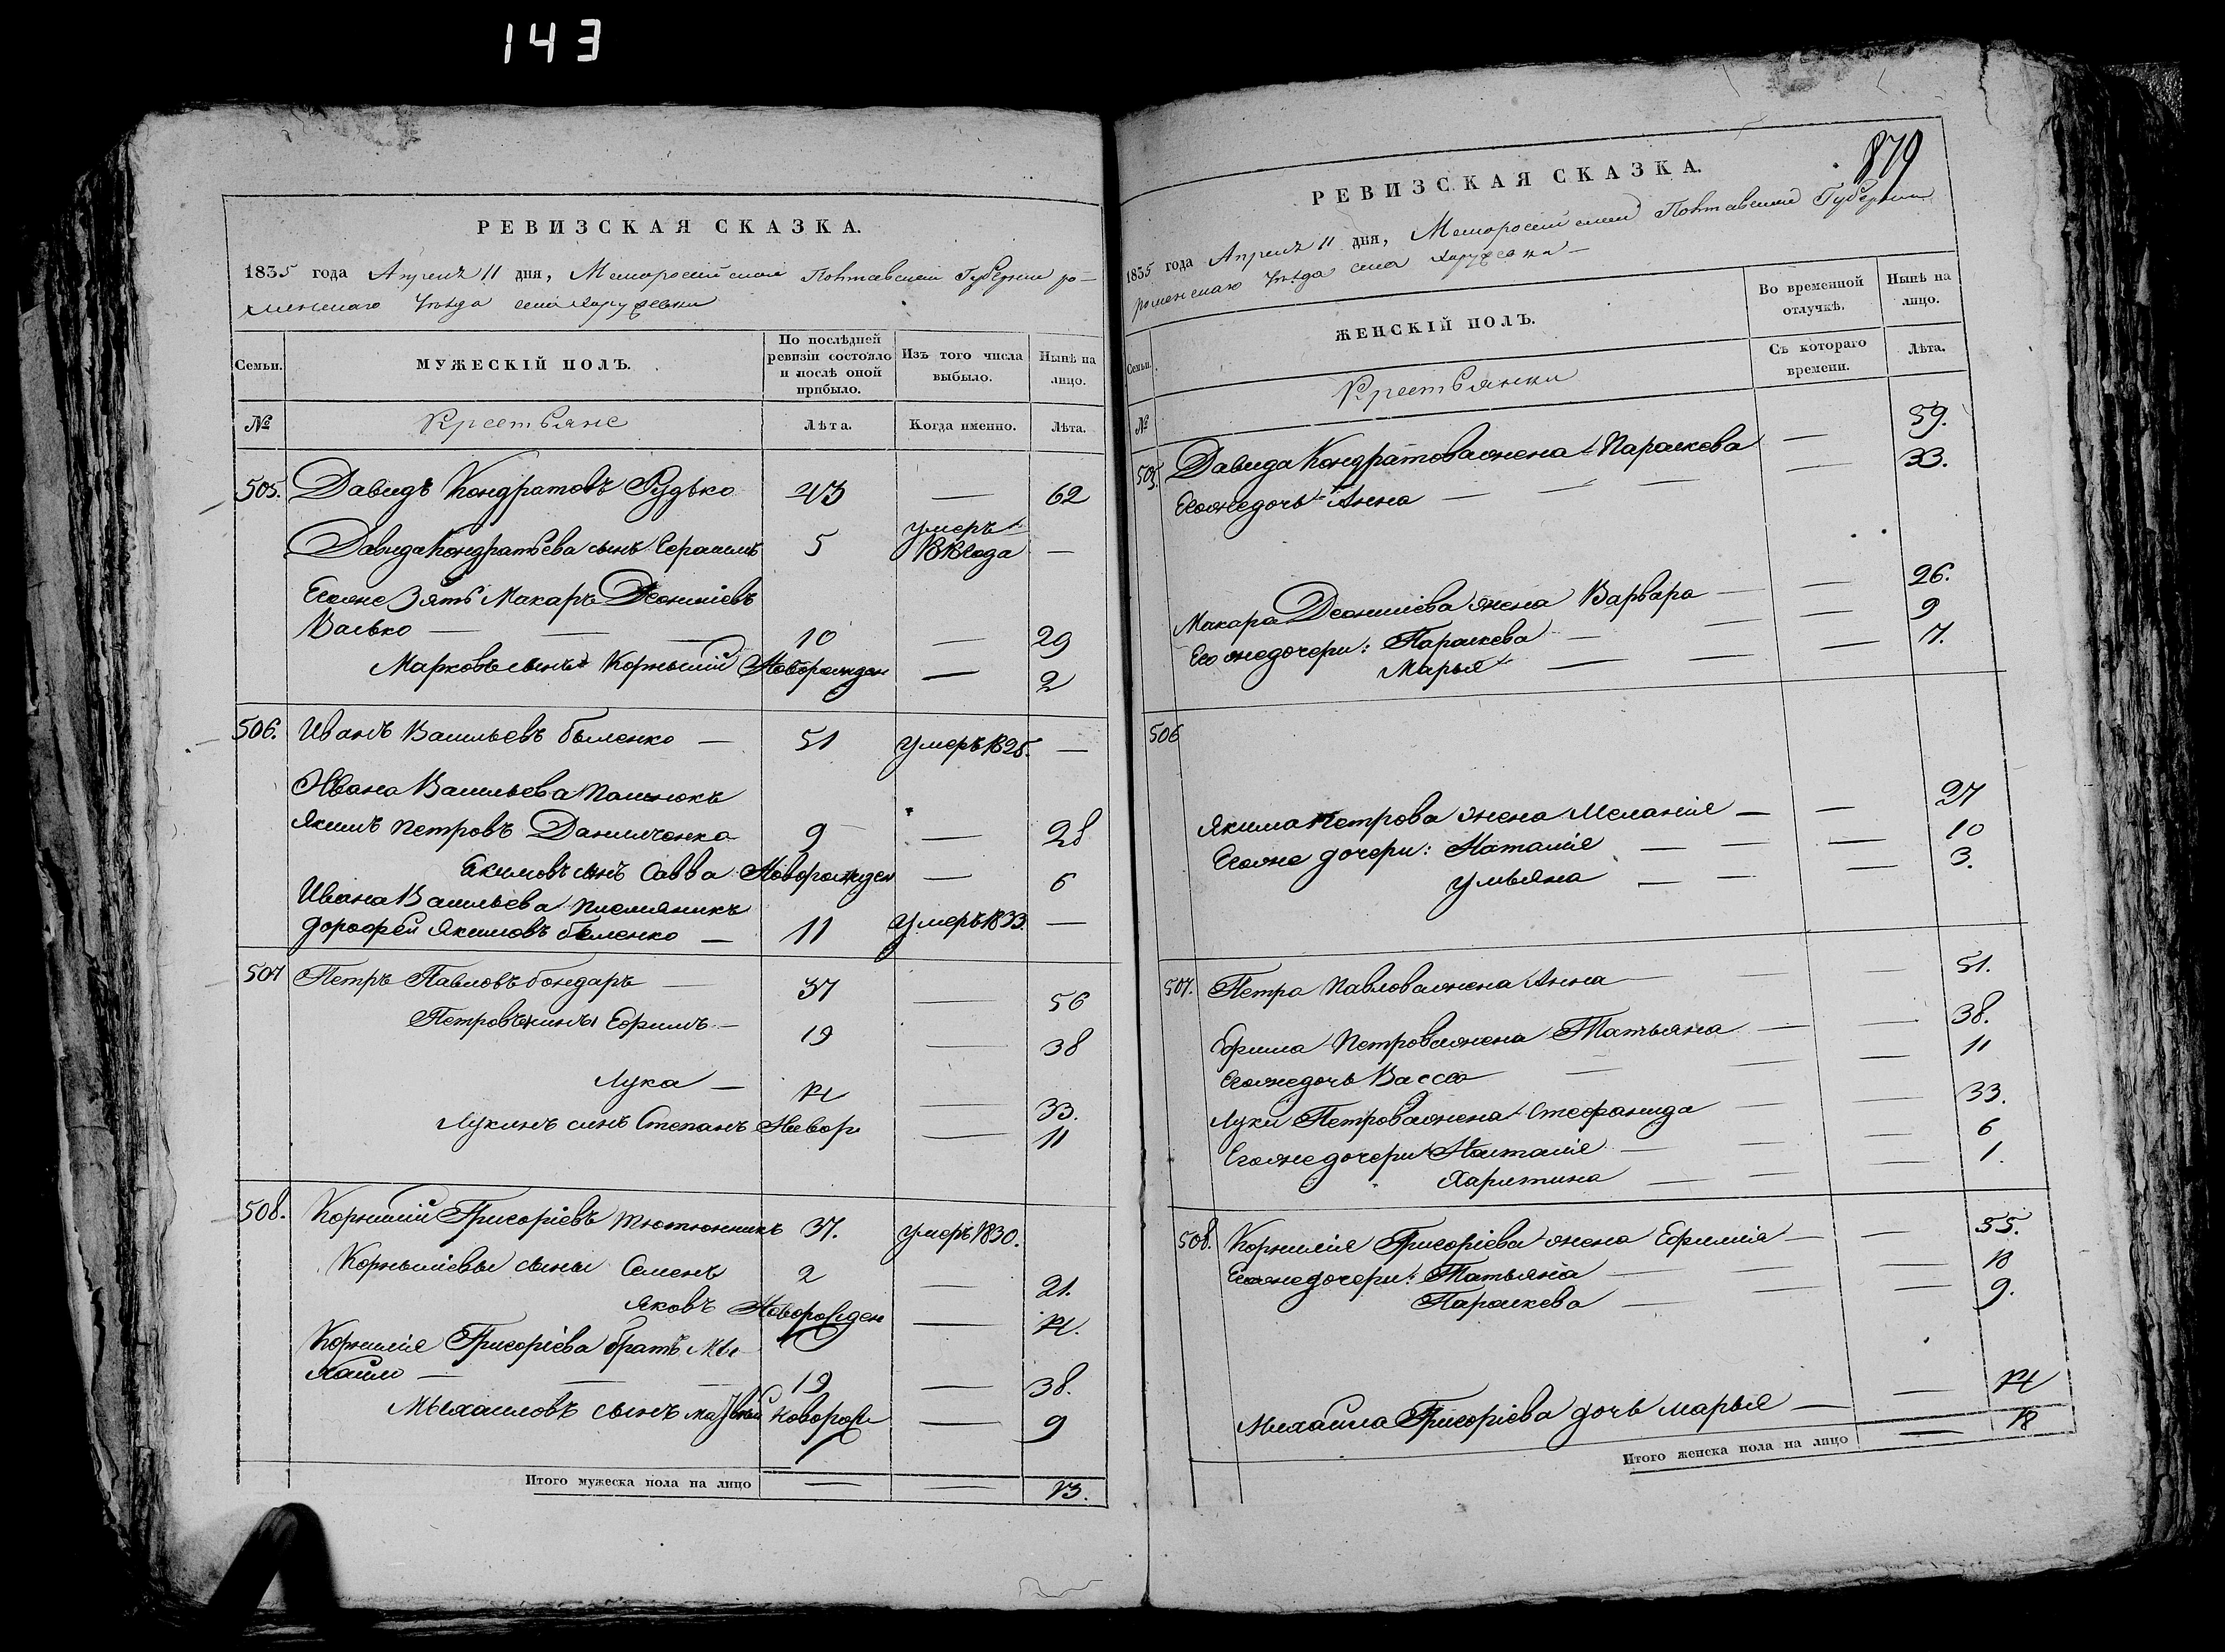 143
РЕВИЗСКАЯ СКАЗКА.
1835 года Апреля 11 дня, Малоросійской Полтавской Губерніи ро-
менскаго Уѣзда села Хоружевки
Семьи.
МУЖЕСКІЙ ПОЛЪ.
По послѣдней ревизіи состояло и послѣ оной прибыло.
Изъ того числа выбыло.
Нынѣ на лицо.
№
Крестьяне
Лѣта.
Когда именно.
Лѣта.
505. Давидъ Кондратовъ Рудько 43 — 62
Давида Кондратьева сынъ Герасимъ 5 умеръ года —
Егоже Зять Макаръ Деонисіевъ
Васько — — — 10 — 29
Марковъ сынъ Корнилій Новорожден — 2
506. Иванъ Васильевъ Быленко — 51 умеръ 1825. —
Ивана Васильева
Якимъ Петровъ Данильченко 9 — 28
Екимовъ сынъ Савва Новорожден — 6
Ивана Васильева племяникъ
Дорофей Якимовъ Быленко — 11 Умеръ 1833. —
507 Петръ Павловъ Бондаръ — 37 — 56
Петровъ сынъ Ефимъ — 19 — 38
Лука — 14 — 33.
Лукинъ синъ Степанъ Новор — 11
508. Корнилій Григоріевъ Тютюнникъ 37. умеръ 1830.
Корниліевы сыны Семенъ 2 — 21.
Яковъ Новорожден — 14.
Корнилія Григоріева братъ Мы-
хайло — — — 19 — 38.
Мыхаиловъ сынъ Новорож — 9
Итого мужеска пола на лицо — — 13.
879
РЕВИЗСКАЯ СКАЗКА.
1835 года Апреля 11 дня, Малоросійской Полтавской Губерніи
роменскаго Уѣзда села Хоружевки —
Семьи.
ЖЕНСКІЙ ПОЛЪ.
Во временной отлучкѣ.
Нынѣ на лицо.
Съ котораго времени.
Лѣта.
№
Крестьянки
505. Давида Кондратова жена Параскева — 59.
Егоже дочь Анна — — — — 33.
Макара Деонисіева жена Варвара — — 26.
Его же дочери: Параскева — — — 9
Марья — — — 7.
506
Якима Петрова жена Меланія — — 27
Егоже дочери: Наталія — — — 10
Ульяна — — — 3.
507. Петра Павлова жена Анна — — — 51.
Ефима Петрова жена Татьяна — — 38.
Егоже дочь Васса — — — 11
Луки Петрова жена Стефанида — — 33.
Егоже дочери Наталія — — — 6
Харитина — — — 1.
508. Корнилія Григоріева жена Ефимія — — 55.
Егоже дочери: Татьяна — — —
Параскева — — — 9.
Мыхаила Григоріева дочь Марья — — 14
Итого женска пола на лицо — 18